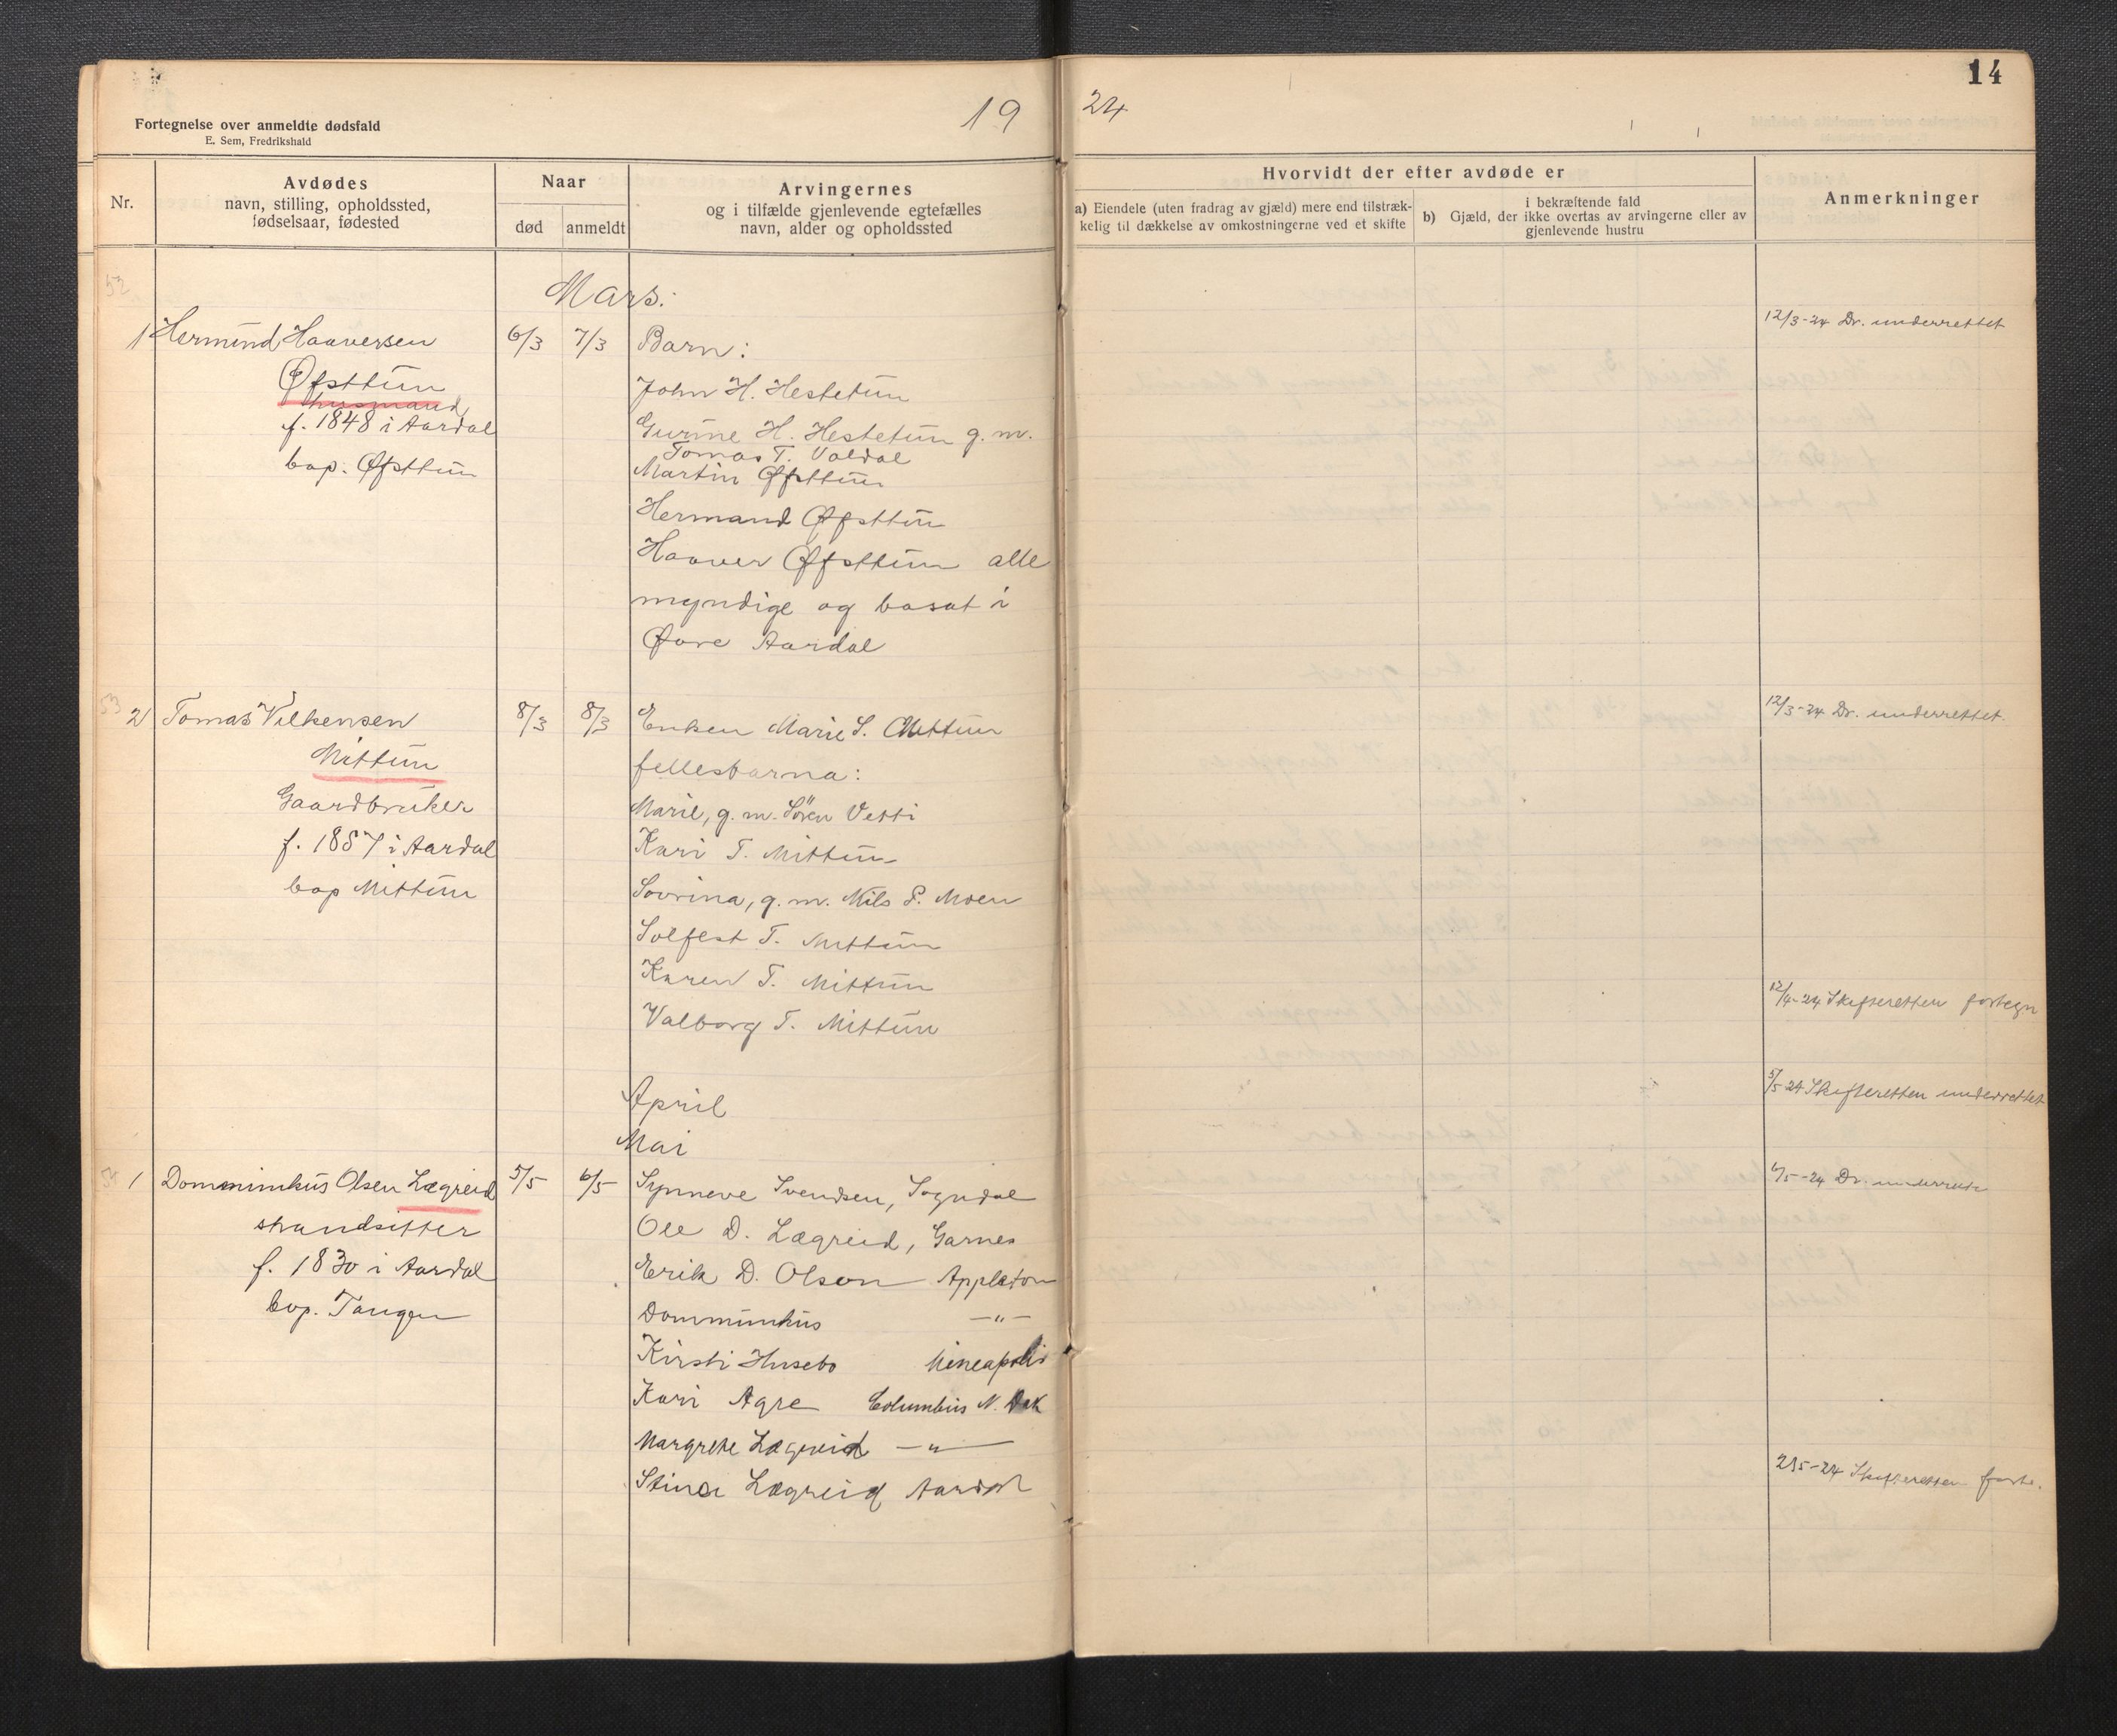 14
Fortegnelse over anmeldte dødsfald
E. Sem, Fredrikshald
19 24
Nr.
Avdødes
navn, stilling, opholdssted,
fødselsaar, fødested
Naar
død anmeldt
Arvingernes
og i tilfælde gjenlevende egtefælles
navn, alder og opholdssted
Hvorvidt der efter avdøde er
a) Eiendele (uten fradrag av gjæld) mere end tilstræk-
kelig til dækkelse av omkostningerne ved et skifte
i bekræftende fald
b) Gjæld, der ikke overtas av arvingerne eller av
gjenlevende hustru
Anmerkninger
52
Mars.
1 Hermund Haaversen 6/3 7/3 Barn: 12/3-24 Dr. underrettet
Øfsttun
husmand
f. 1848 i Aardal
bop. Øfsttun
John H. Hestetun
Gurine H. Hestetun g. m.
Tomas T. Voldal
Martin Øfsttun
Hermand Øfsttun
Haaver Øfsttun alle
myndige og bosat i
Øvre Aardal
53
2 Tomas Vilkensen 8/3 8/3 Enken Marie S. Mittun 12/3-24 Dr. underrettet.
Mittun
Gaardbruker
f. 1857 i Aardal
bop Mittun
fellesbarna:
Marie, g. m. Sören Vetti
Kari T. Mittun
Sovrina, g. m. Nils P. Moen
Solfest T. Mittun
Karen T. Mittun
Valborg T. Mittun
12/4-24 Skifteretten fortegn
April
5/5 24 Skifteretten underrettet
Mai
54
1 Dommimkus Olsen Lægreid 5/5 6/5 Synneve Svendsen, Sogndal 6/5-24 Dr. underrette
strandsitter
f. 1830 i Aardal
bop. Tangen
Ole D. Lægreid, Garnes
Erik D. Olson Appleton
Dommimkus —"—
Kirsti Husebo Mineapolis
Kari Agre Columbus N. Dak
Margrete Lægreid —"—
Stina Lægreid Aardal
21/5-24 Skifteretten forte.